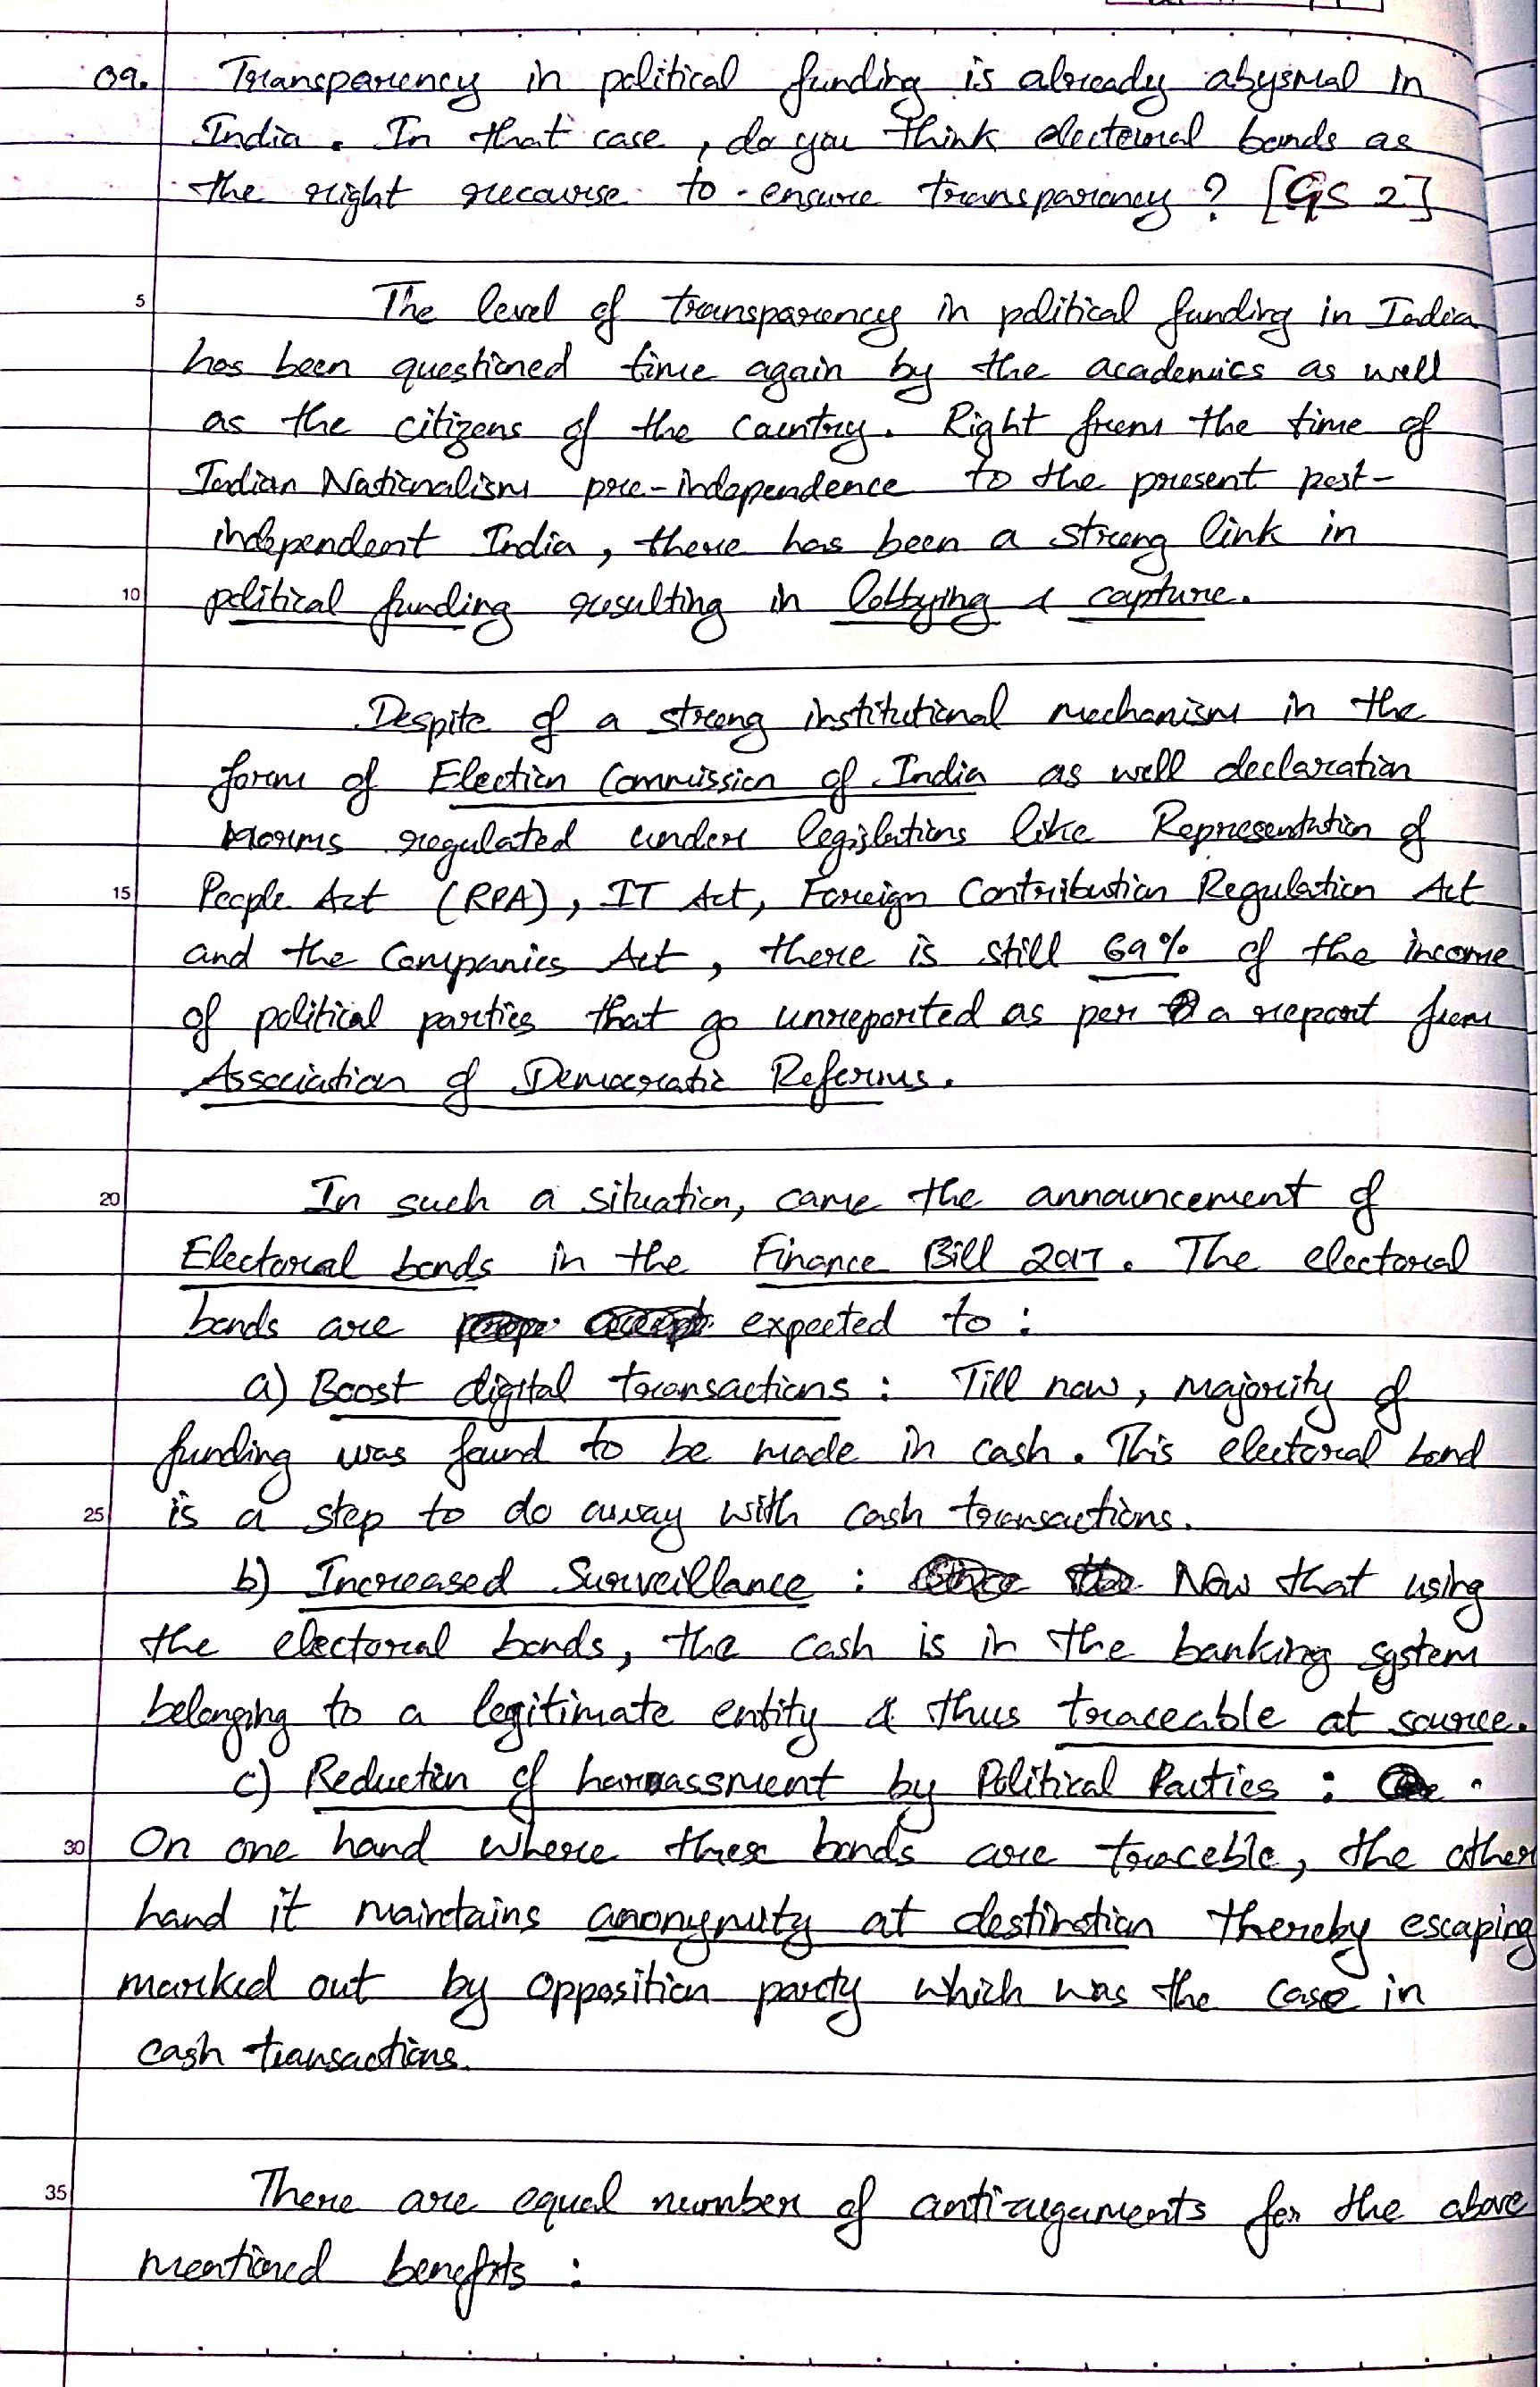 Q9. Transparency in political funding is already abysmal in
India. In that case, do you think electoral bonds as
the right recourse to ensure transparency? [GS 2]
5 The level of transparency in political funding in India
has been questioned time again by the academics as well
as the citizens of the country. Right from the time of
Indian Nationalism pre-independence to the present post-
independent India, there has been a strong link in
10 political funding resulting in lobbying & capture.
Despite of a strong institutional mechanism in the
form of Election Commission of India as well declaration
norms regulated under legislations like Representation of
15 People Act (RPA), IT Act, Foreign Contribution Regulation Act
and the Companies Act, there is still 69% of the income
of political parties that go unreported as per a report from
Association of Democratic Reforms.
20 In such a situation, came the announcement of
Electoral bonds in the Finance Bill 2017. The electoral
bonds are expected to:
a) Boost digital transactions: Till now, majority of
funding was found to be made in cash. This electoral bond
25 is a step to do away with cash transactions.
b) Increased Surveillance: Now that using
the electoral bonds, the cash is in the banking system
belonging to a legitimate entity & thus traceable at source.
c) Reduction of harrassment by Political Parties:
30 On one hand where these bonds are traceble, the other
hand it maintains anonymity at destination thereby escaping
marked out by opposition party which was the case in
cash transactions.
35 There are equal number of antiarguments for the above
mentioned benefits: